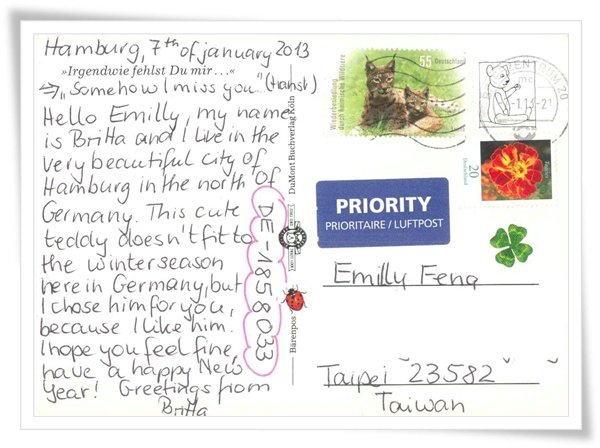 Hamburg, 7th of january 2013
»Irgendwie fehlst Du mir...«
→ "Somehow I miss you" (transl.)
Hello Emilly, my name
is Britta and I live in the
very beautiful city of
Hamburg in the north of
Germany. This cute
teddy doesn't fit to
the winterseason
here in Germany, but
I chose him for you,
because I like him.
I hope you feel fine,
have a happy New
year! Greetings from
Britta
DE-1858033
DuMont Buchverlag Köln
Bärenpos
55 Deutschland
Wiederbesiedlung
durch heimische Wildtiere
20
Deutschland
PRIORITY
PRIORITAIRE / LUFTPOST
Emilly Feng
Taipei 23582
Taiwan